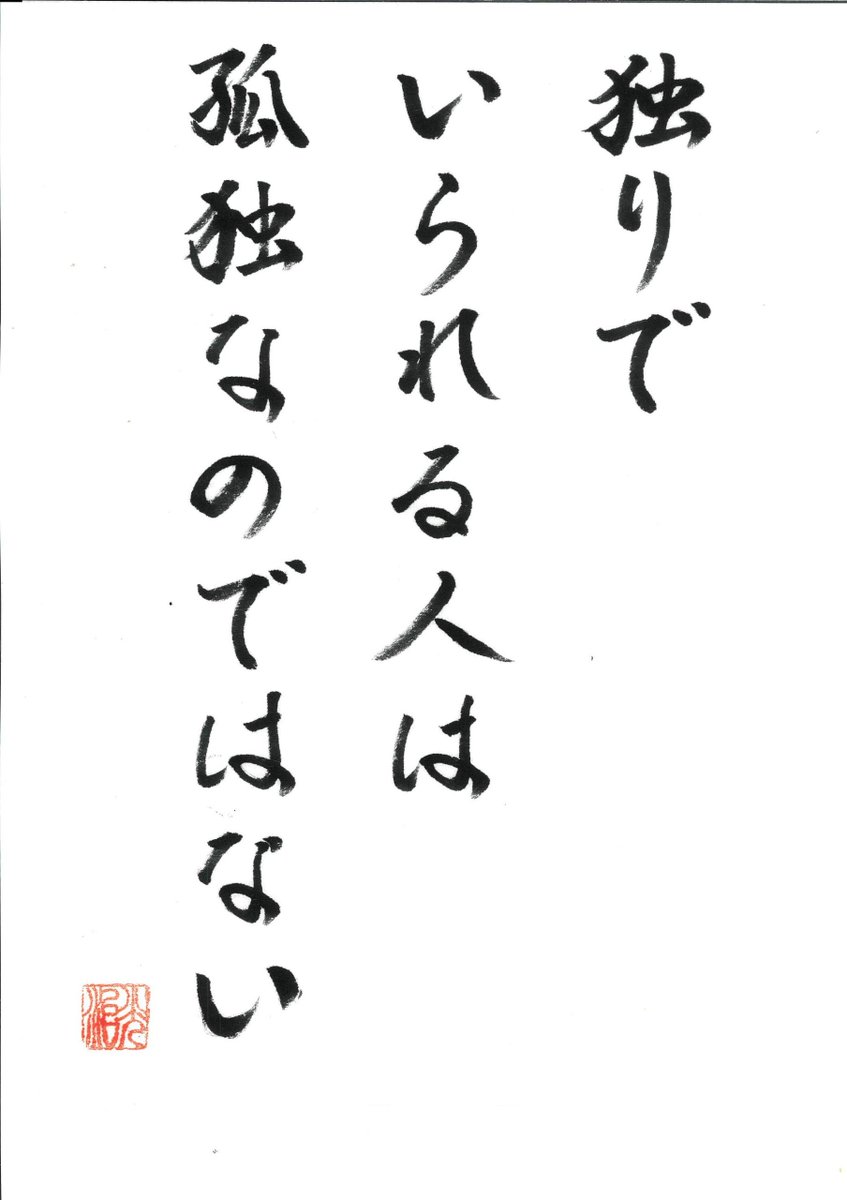 独りで
いられる人は
孤独なのではない